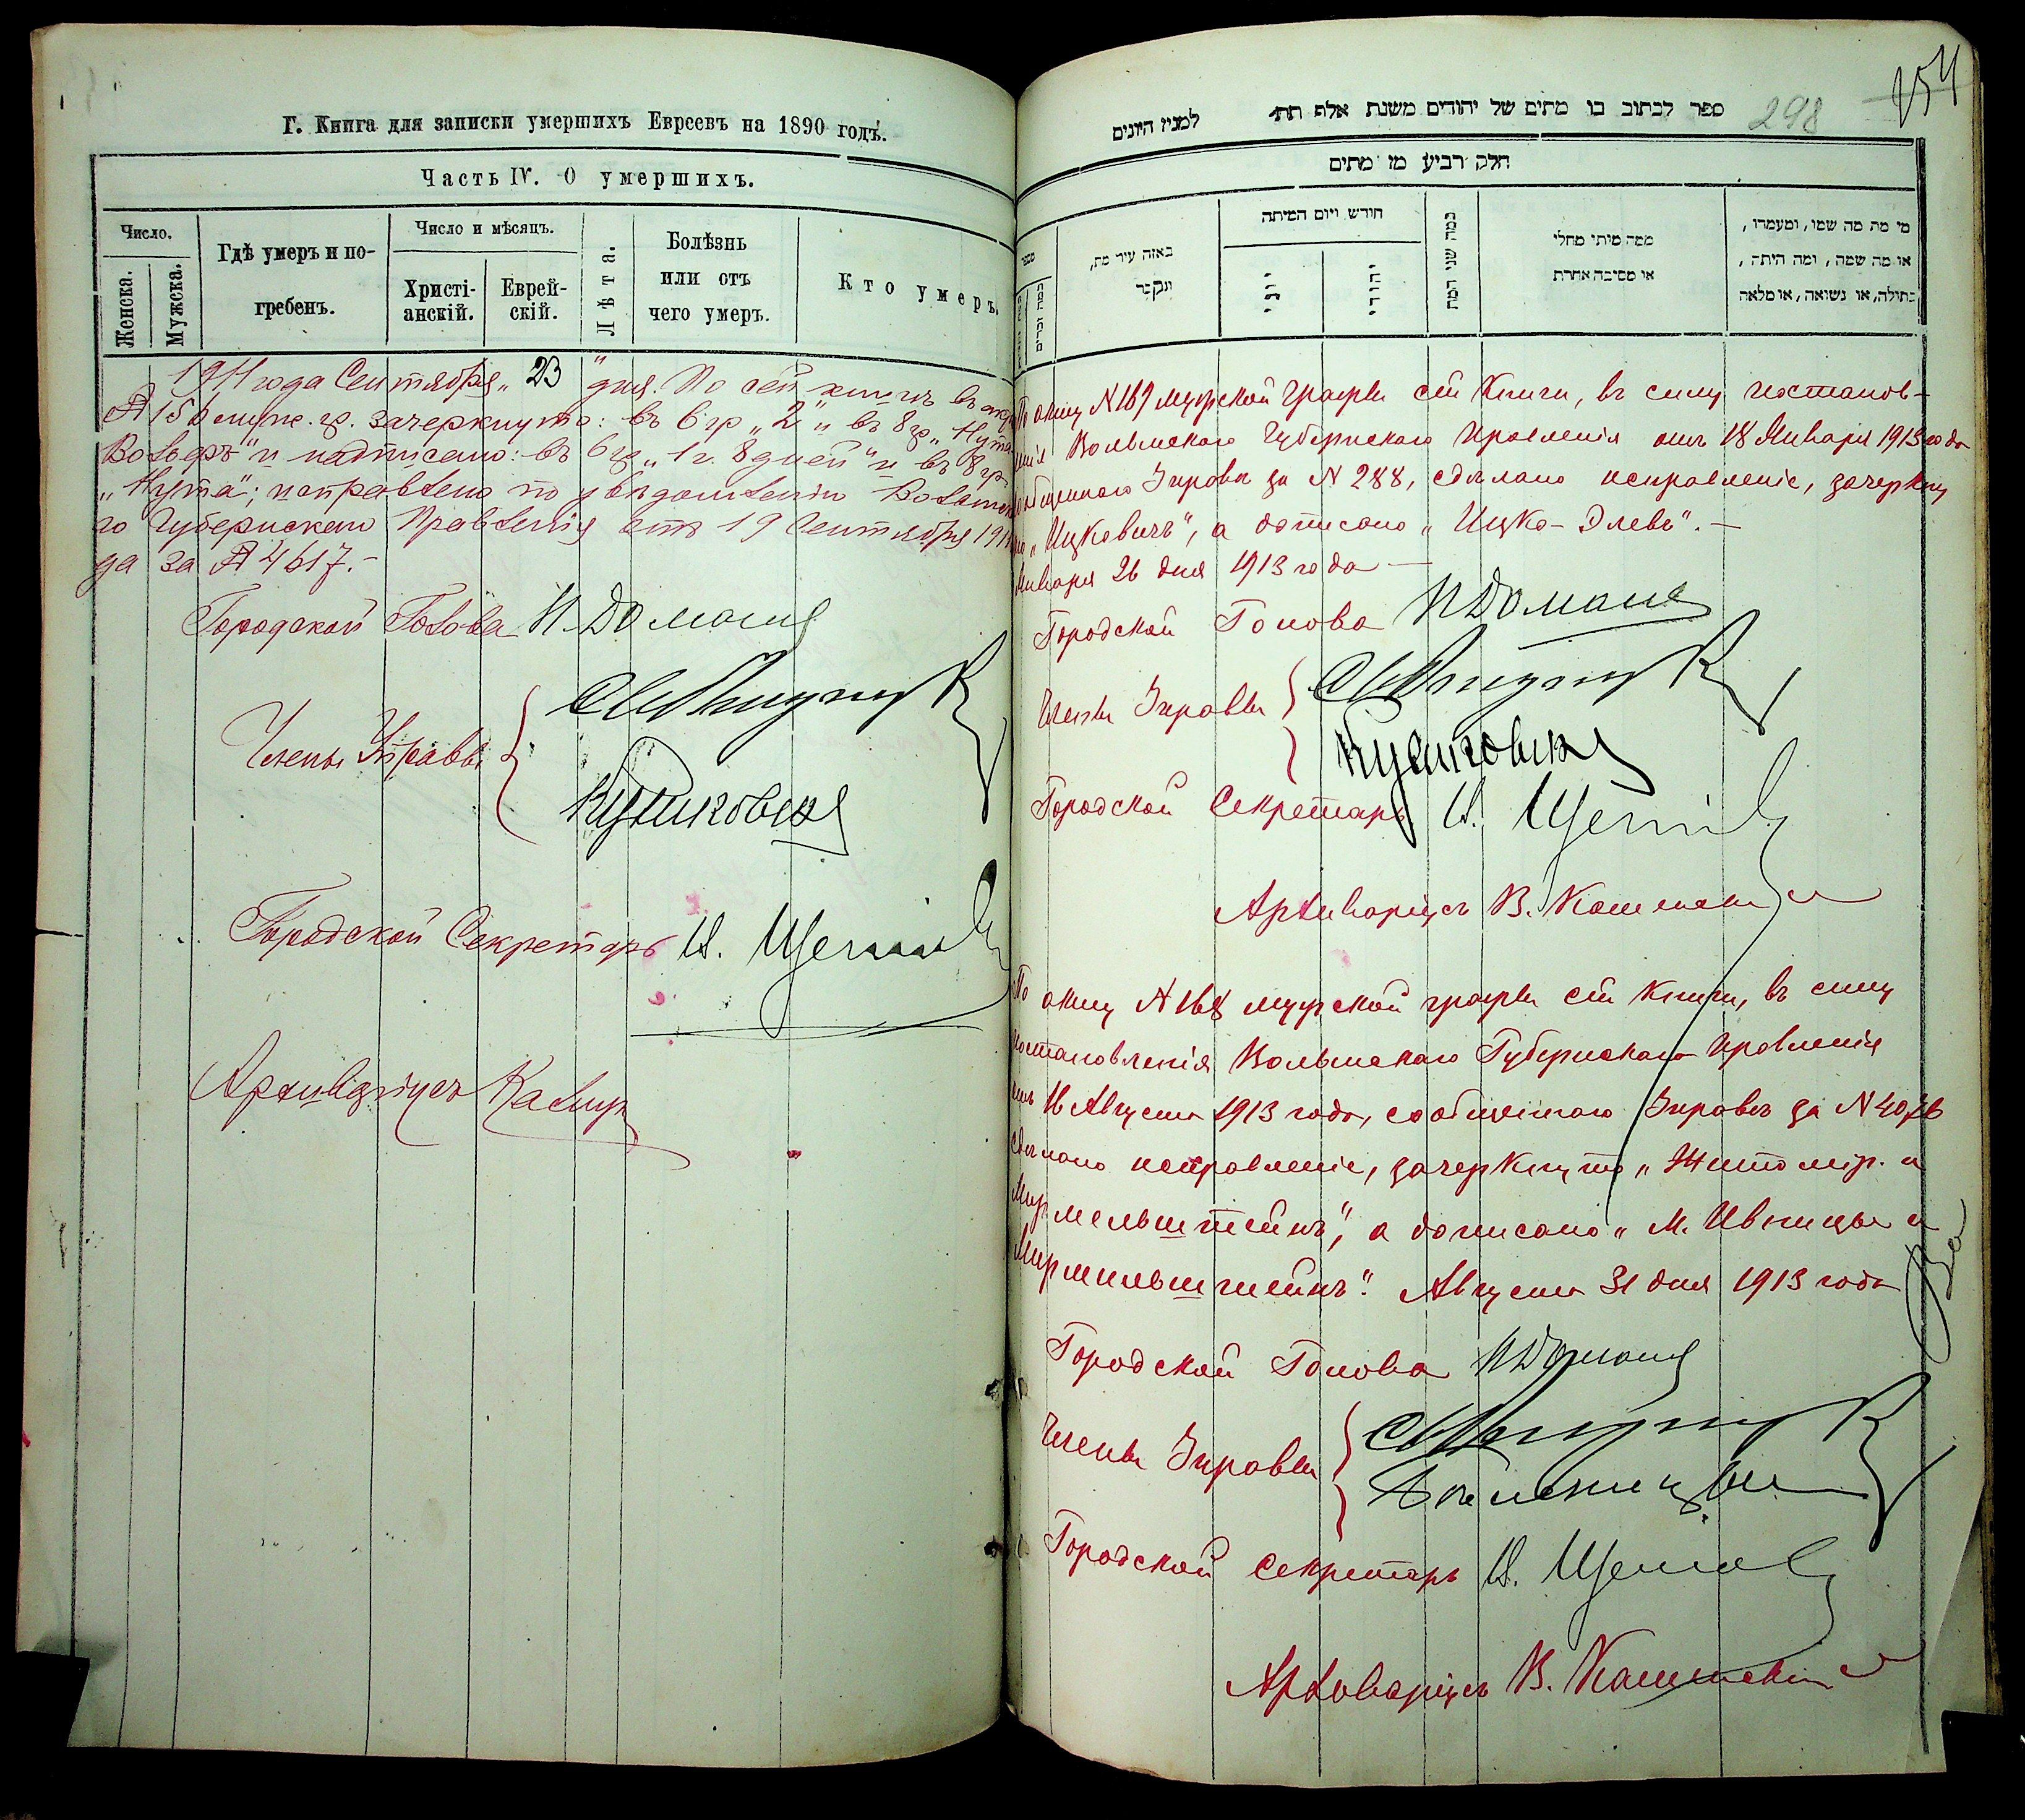 Г. Книга для записки умершихъ Евреевъ на 1890 годъ.
Часть IV. О умершихъ.
Число.
Женска.
Мужска.
Гдѣ умеръ и по-
гребенъ.
Число и мѣсяцъ.
Христі-
анскій.
Еврей-
скій.
Лѣта.
Болѣзнь
или отъ
чего умеръ.
Кто умеръ.
1911 года Сентября „23" дня. По сей книгѣ въ
№ 156 муж. гр. зачеркнуто: въ 6 гр „2" и въ 8 гр „Нута
Вольфъ" и надписано: въ 6 гр „1 г. 8 дней" и въ 8 гр.
„Нута"; исправлено по увѣдомленію
го Губернскаго Правленія отъ 19 Сентября 191
да за № 4617.-
Городской Голова И. Домания
Члены Управы
Городской Секретарь И.
Архиваріусъ
254
298
ספר לכתוב בו מתים של יהודים משנת אלף תתי למנין היונים
חלק רביע מן מתים
מספר
כמה זכרים
באזה עיר מת,
ונקבר
חודש ויום המיתה
יוני
יהודי
כמה שני המת
ממה מיתי מחלי
או מסיבה אחרת
מי מת מה שמו, ומעמדו,
או מה שמה, ומה היתה,
בתולה, או נשואה, או מלאה
По акту N 167 мужской графы сей Книги, въ силу постанов-
ленія Волынскаго Губернскаго Правленія отъ 18 Января 1913 года
сообщеннаго Управѣ за N 288, сдѣлано исправленіе, зачеркну
то „Ицковичъ", а дописано „Ицко-Элевъ". —
Января 26 дня 1913 года —
Городской Голова И Домания
Члены Управы
Городской Секретарь И.
Архиваріусъ В.
По акту № 168 мужской графы сей Книги, въ силу
постановленія Волынскаго Губернскаго Правленія
отъ 16 Августа 1913 года, сообщеннаго Управѣ за N 4076
сдѣлано исправленіе, зачеркнуто „Житомір. и
Мурмельштейнъ", а дописано „М. Ивницы и
Мирмильштейнъ". Августа 31 дня 1913 года
Городской Голова И Домания
Члены Управы
Городской Секретарь И.
Архиваріусъ В.